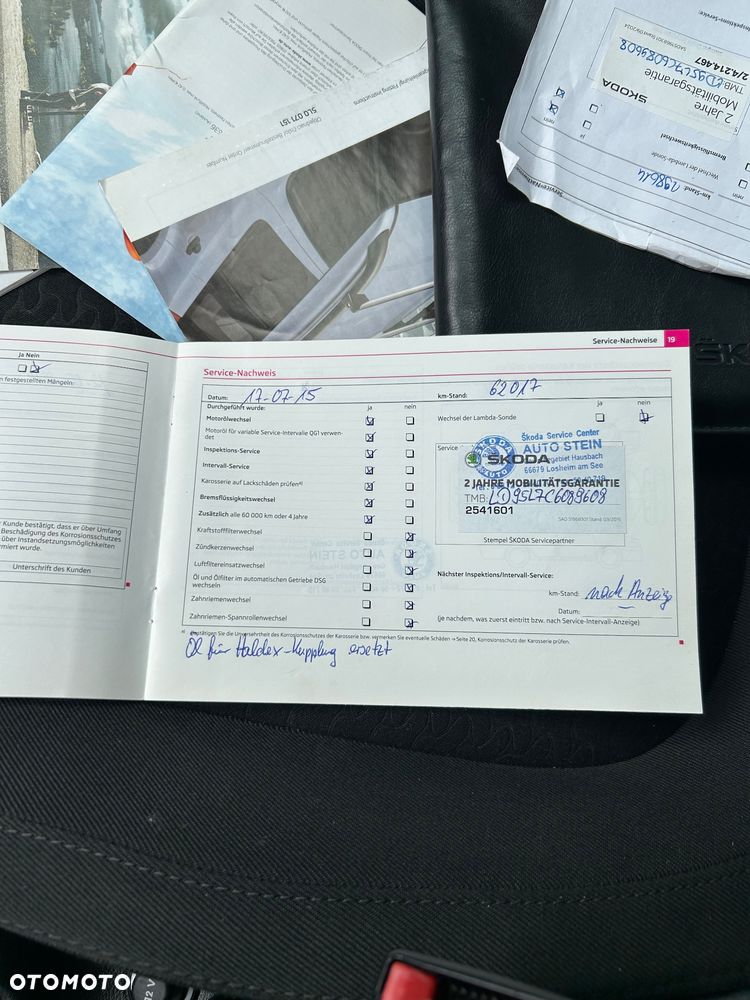 Objednací číslo/ Bestellnummer/ Order Number
5L0 071 151
Inspektions-Service:
SKODA
2 Jahre
Mobilitätsgarantie
Bremsflüssigkeitswechsel
ja
nein
Wechsel der Lambda-Sonde
nein
km-Stand: 198614
Service-Nachweise 19
Ja Nein
n festgestellten Mängeln:
Kunde bestätigt, dass er über Umfang
Beschädigung des Korrosionsschutzes
über Instandsetzungsmöglichkeiten
rmiert wurde.
Unterschrift des Kunden
Service-Nachweis
Datum: 17-07-15
km-Stand: 62017
Durchgeführt wurde: ja nein
Motorölwechsel
Motoröl für variable Service-Intervalle QG1 verwen-
det
Inspektions-Service
Intervall-Service
Karosserie auf Lackschäden prüfen
Bremsflüssigkeitswechsel
Zusätzlich alle 60 000 km oder 4 Jahre
Kraftstofffilterwechsel
Zündkerzenwechsel
Luftfiltereinsatzwechsel
Öl und Ölfilter im automatischen Getriebe DSG
wechseln
Zahnriemenwechsel
Zahnriemen-Spannrollenwechsel
ja nein
Wechsel der Lambda-Sonde
Service
Škoda Service Center
AUTO STEIN
SKODA
gebiet Hausbach
66679 Losheim am See
2 JAHRE MOBILITÄTSGARANTIE
TMB: LD95L7C6089609
2541601
Stempel ŠKODA Servicepartner
Nächster Inspektions/Intervall-Service:
km-Stand: nach Anzeige
Datum:
(je nachdem, was zuerst eintritt bzw. nach Service-Intervall-Anzeige)
Bestätigen Sie die Unversehrtheit des Korrosionsschutzes der Karosserie bzw. vermerken Sie eventuelle Schäden → Seite 20, Korrosionsschutz der Karosserie prüfen.
Öl für Haldex-Kupplung ersetzt
OTOMOTO
12 V